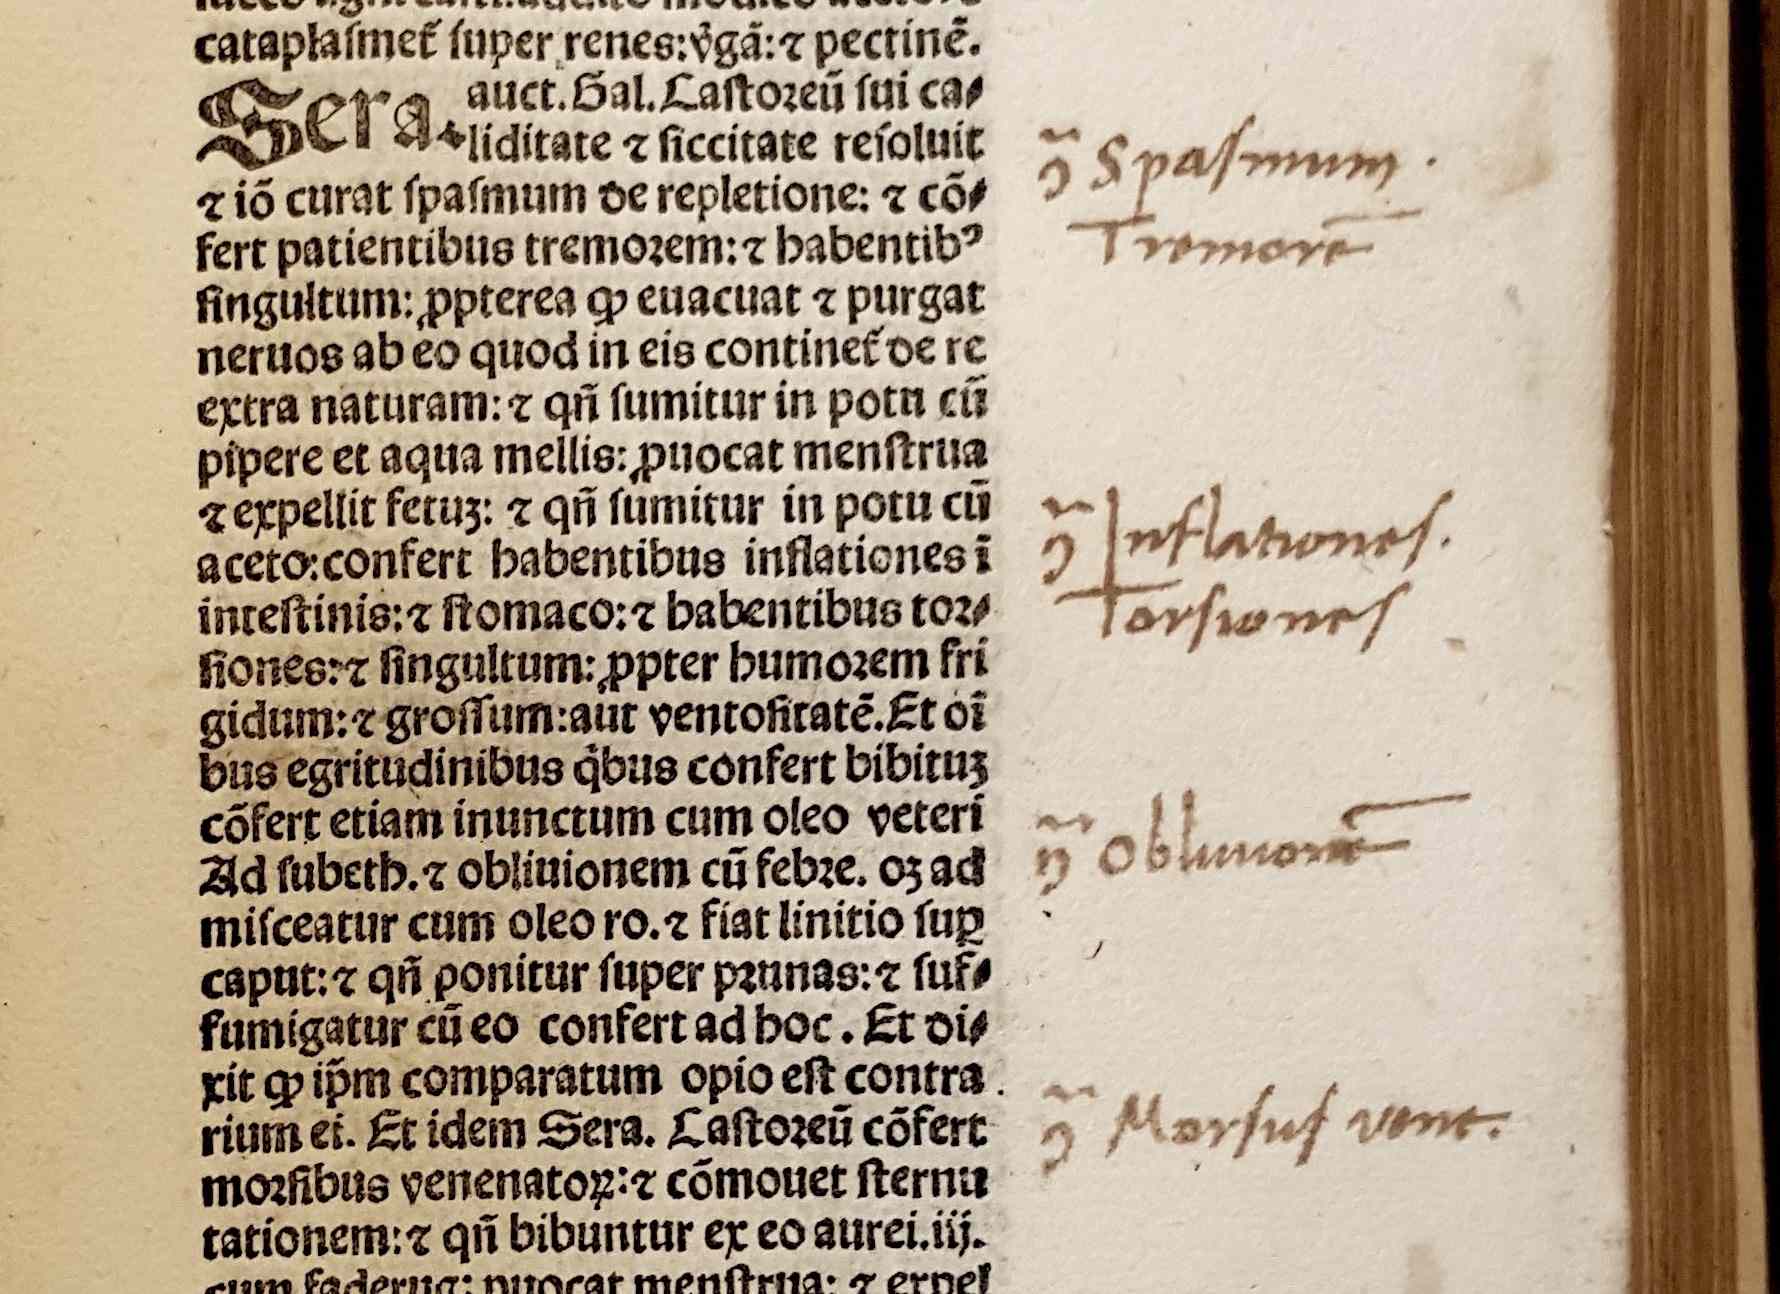 cataplaſmet᷑ ſuper renes: v̓gā: ⁊ pectinē.
Sera. auct. Gal. Caſtoꝛeū ſui ca⸗
liditate ⁊ ſiccitate reſoluit
⁊ iō curat ſpaſmum de repletione: ⁊ cō⸗
fert patientibus tremoꝛem: ⁊ habentibꝰ
ſingultum: ꝓpterea ꝙ euacuat ⁊ purgat
neruos ab eo quod in eis continet᷑ de re
extra naturam: ⁊ qñ ſumitur in potu cū
pipere et aqua mellis: ꝓuocat menſtrua
⁊ expellit fetuꝫ: ⁊ qñ ſumitur in potu cū
aceto: confert habentibus inflationes ī
inteſtinis: ⁊ ſtomaco: ⁊ habentibus toꝛ⸗
ſiones: ⁊ ſingultum: ꝓpter humoꝛem fri
gidum: ⁊ groſſum: aut ventoſitatē. Et oī
bus egritudinibus q̇bus confert bibituꝫ
cōfert etiam inunctum cum oleo veteri
Ad ſubeth. ⁊ obliuionem cū febꝛe. oꝫ ad
miſceatur cum oleo ro. ⁊ fiat linitio ſuꝑ
caput: ⁊ qñ ponitur ſuper pꝛunas: ⁊ ſuf⸗
fumigatur cū eo confert ad hoc. Et di⸗
xit ꝙ ip̄m comparatum opio eſt contra
rium ei. Et idem Sera. Caſtoꝛeū cōfert
moꝛſibus venenatoꝝ: ⁊ cōmouet ſternu
tationem: ⁊ qñ bibuntur ex eo aurei. iij.
Spaſmum.
Tremorē
Inflationeſ.
Torſioneſ
Obliuionē
Morſuſ vene.